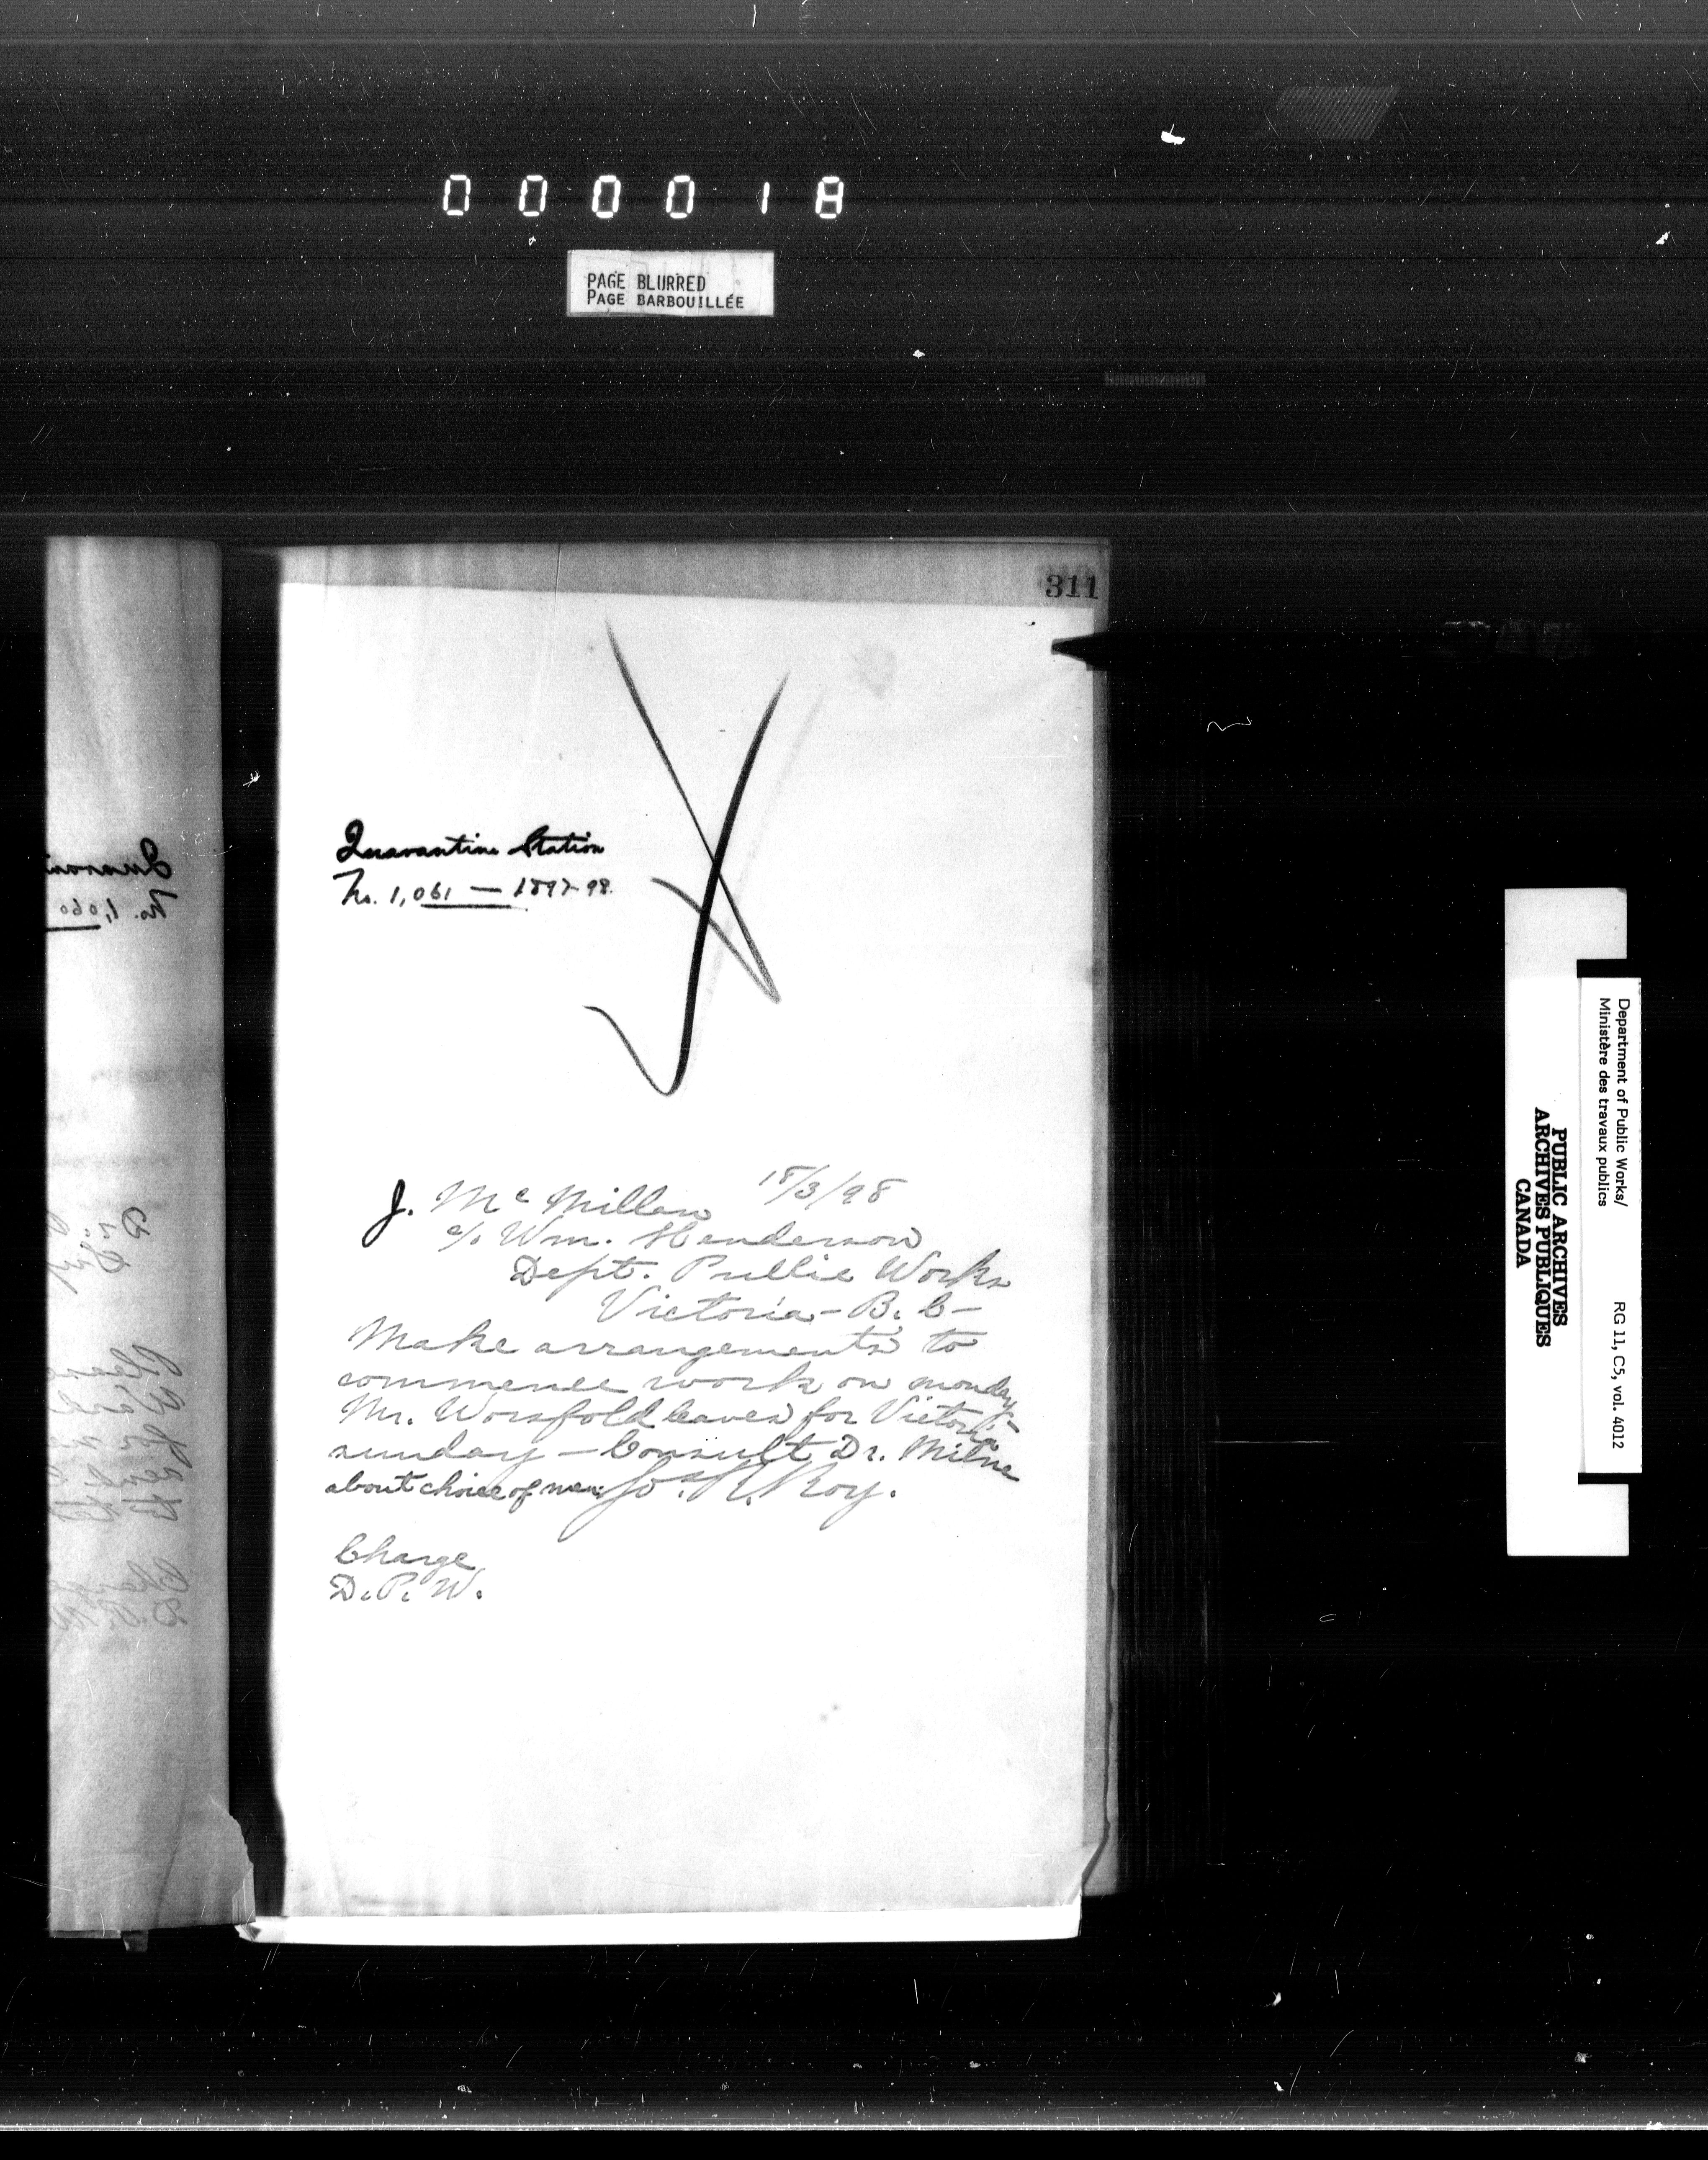 000018
PAGE BLURRED
PAGE BARBOUILLÉE
311
Quarantine Station
No. 1,061 — 1897-98.
18/3/98
J. McMillan
c/o Wm. Henderson
Dept. Public Works
Victoria - B. C -
Make arrangements to
commence work on monday
Mr. Worsfold leaves for Victoria -
sunday - Consult Dr. Milne
about choice of men. Jos. R. Roy.
Charge
D. P. W.
Department of Public Works/
Ministère des travaux publics
RG 11, C5, vol. 4012
PUBLIC ARCHIVES
ARCHIVES PUBLIQUES
CANADA
No. 1,060